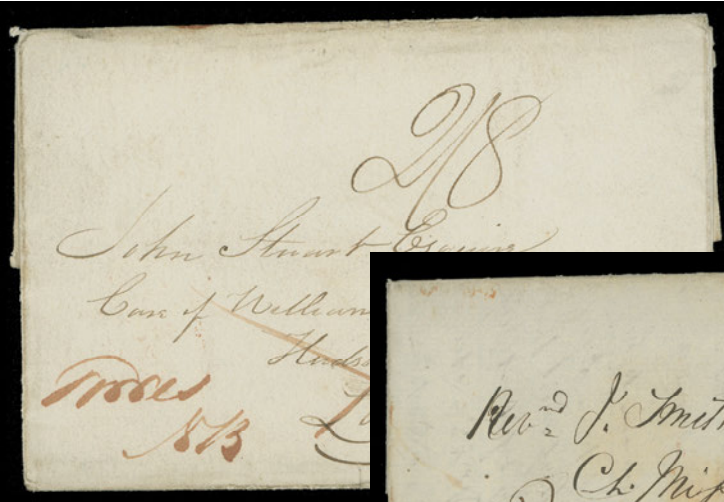 2/8
John Stuart Esquire
Care of William
Huds
Lo
Rev.nd J. Smith
Ch. Miss